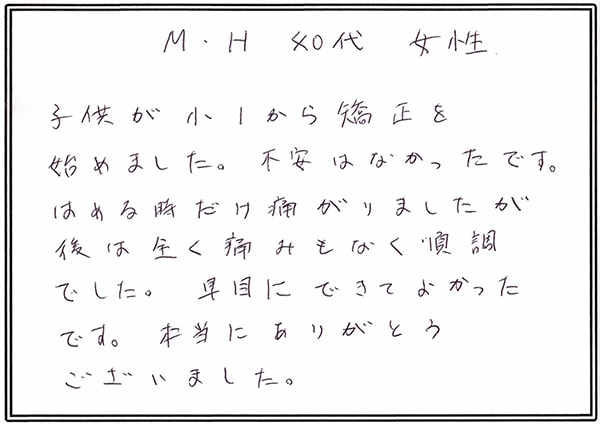 M・H 40代 女性
子供が小1から矯正を
始めました。不安はなかったです。
はめる時だけ痛がりましたが
後は全く痛みもなく順調
でした。早目にできてよかった
です。本当にありがとう
ございました。